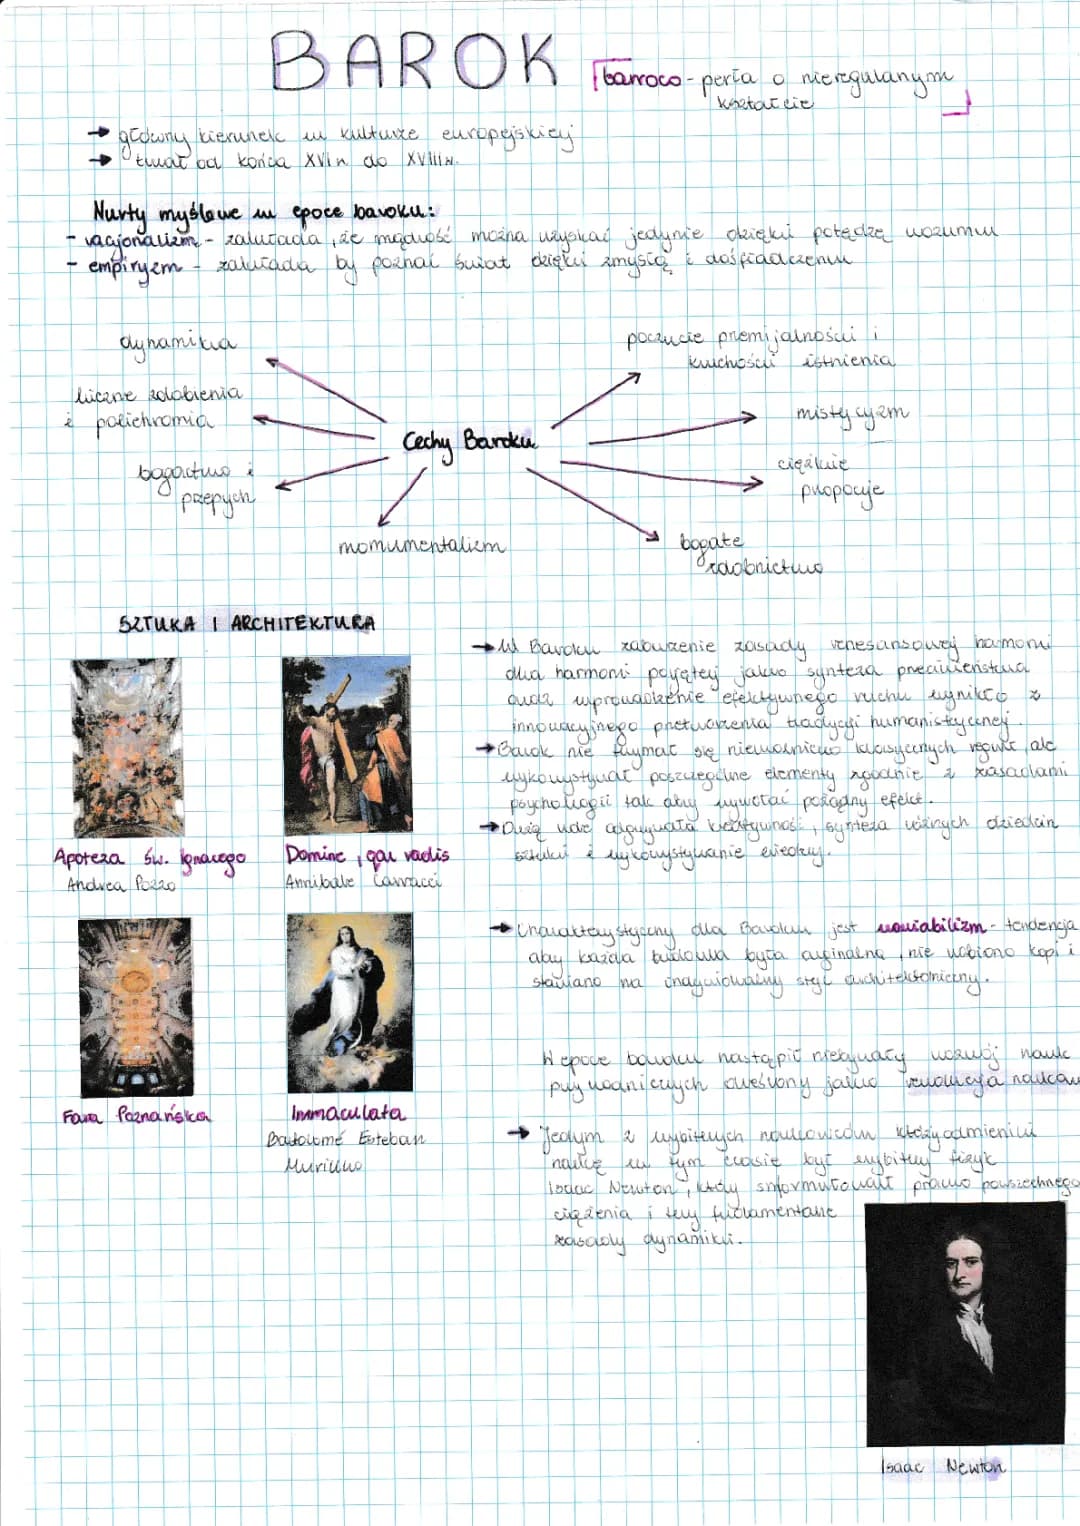 BAROK
barroco - perła o nieregularnym
kształcie
→ główny kierunek w kulturze europejskiej
→ trwał od końca XVI w do XVIII w.
Nurty myślowe w epoce baroku:
- racjonalizm - zakłada, że mądrość można uzyskać jedynie dzięki potędze rozumu
- empiryzm - zakłada by poznać świat dzięki zmysłą i doświadczeniu
dynamika
liczne zdobienia
i polichromia
bogactwo i
przepych
monumentalizm
Cechy Baroku
poczucie przemijalności i
kruchości istnienia
mistycyzm
ciężkie
propocje
bogate
zdobnictwo
SZTUKA I ARCHITEKTURA
Apoteza św. Ignacego
Andrea Pozzo
Domine, quo vadis
Annibale Carracci
Fara Poznańska
Immaculata
Bartolomé Esteban
Murillo
→ W Baroku zaburzenie zasady renesansowej harmoni
dla harmoni pojętej jako synteza przeciwieństwa
oraz wprowadzenie efektywnego ruchu wynikło z
innowacyjnego przetworzenia tradycji humanistycznej.
→ Barok nie trzymał się niewolniczo klasycznych reguł, ale
wykorzystywał poszczególne elementy zgodnie z zasadami
psychologii tak aby wywołać pożądny efekt.
→ Dużą rolę odgrywała kreatywność, synteza różnych dziedzin
sztuki i wykorzystywanie wiedzy.
→ Charakterystyczny dla Baroku jest wariabilizm - tendencja
aby każda budowla była oryginalna, nie robiono kopi i
stawiano na styl architektoniczny.
W epoce baroku nastąpił niebywały rozwój nauk
przyrodniczych określony jako rewolucja naukowa
→ Jednym z wybitnych naukowców którzy odmienili
naukę w tym czasie był wybitny fizyk
Isaac Newton, który sformułował prawo powszechnego
ciążenia i trzy fudamentalne
zasady dynamiki.
Isaac Newton